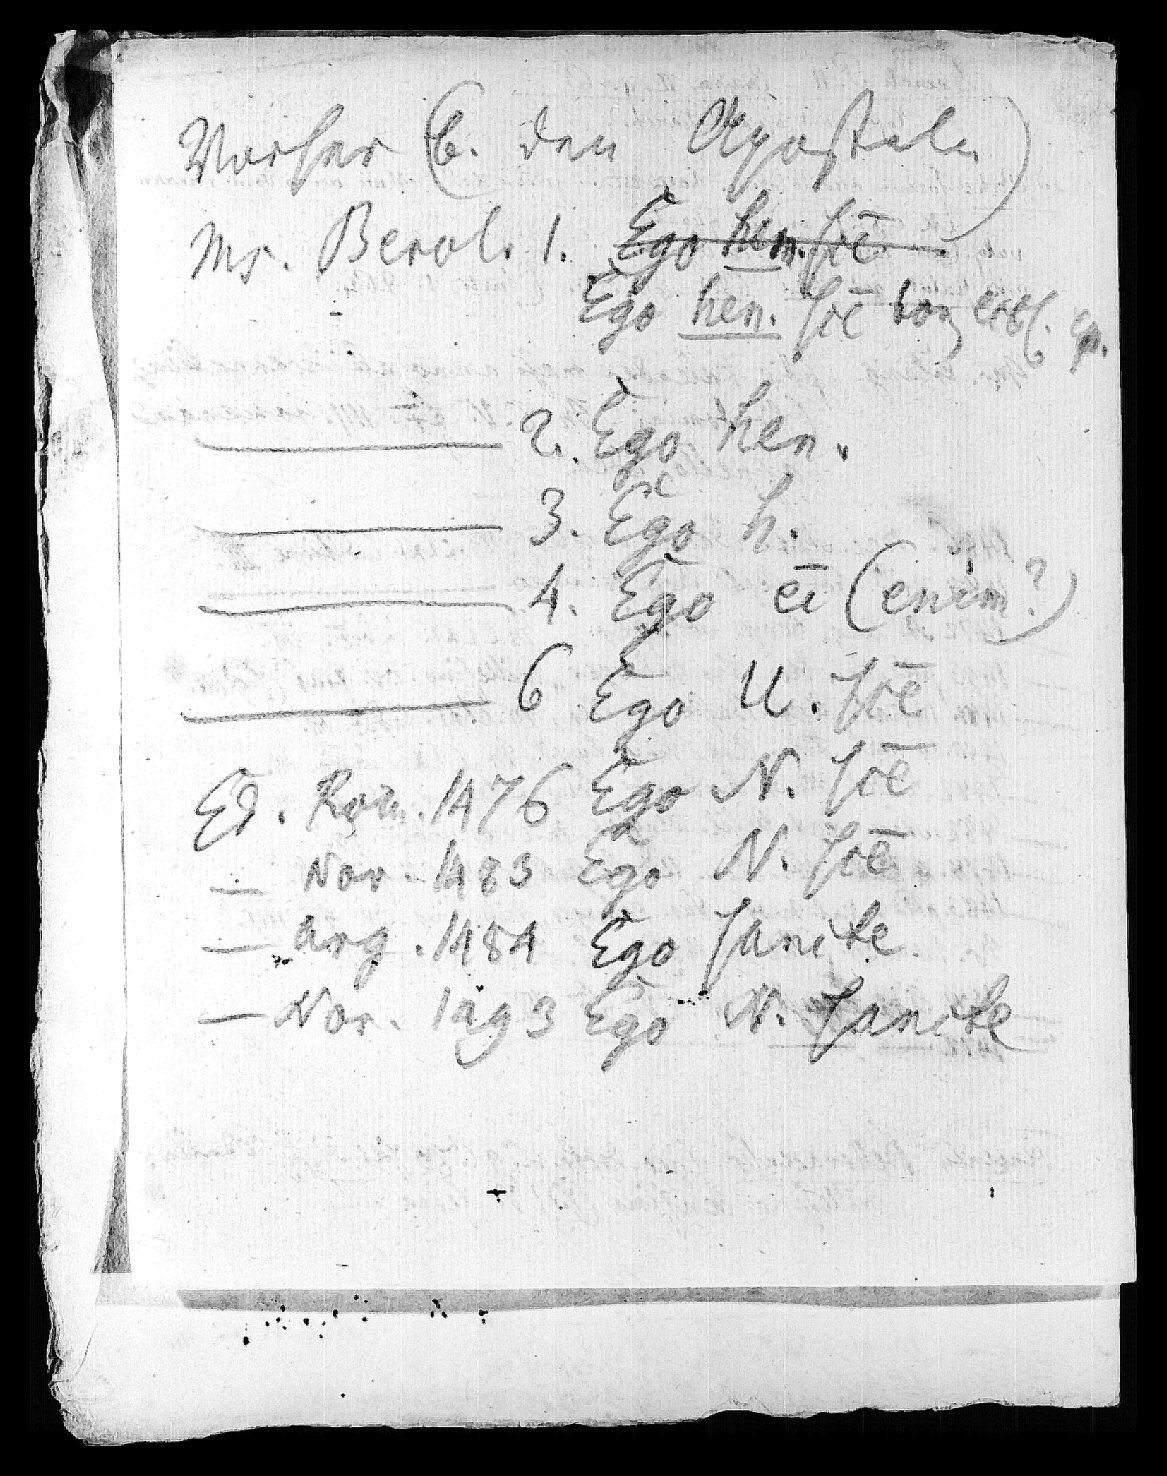 Vorher (b. den Aposteln)
Ms. Berol. 1. Ego hen. scē
Ego hen. scē
2. Ego hen.
3. Ego h.
4. Ego ei (enim?)
6 Ego U. scē
Ed. Rom. 1476 Ego N. scē
— Nor. 1483 Ego N. scē
— Arg. 1484 Ego sancte.
— Nor. 1493 Ego N. sancte